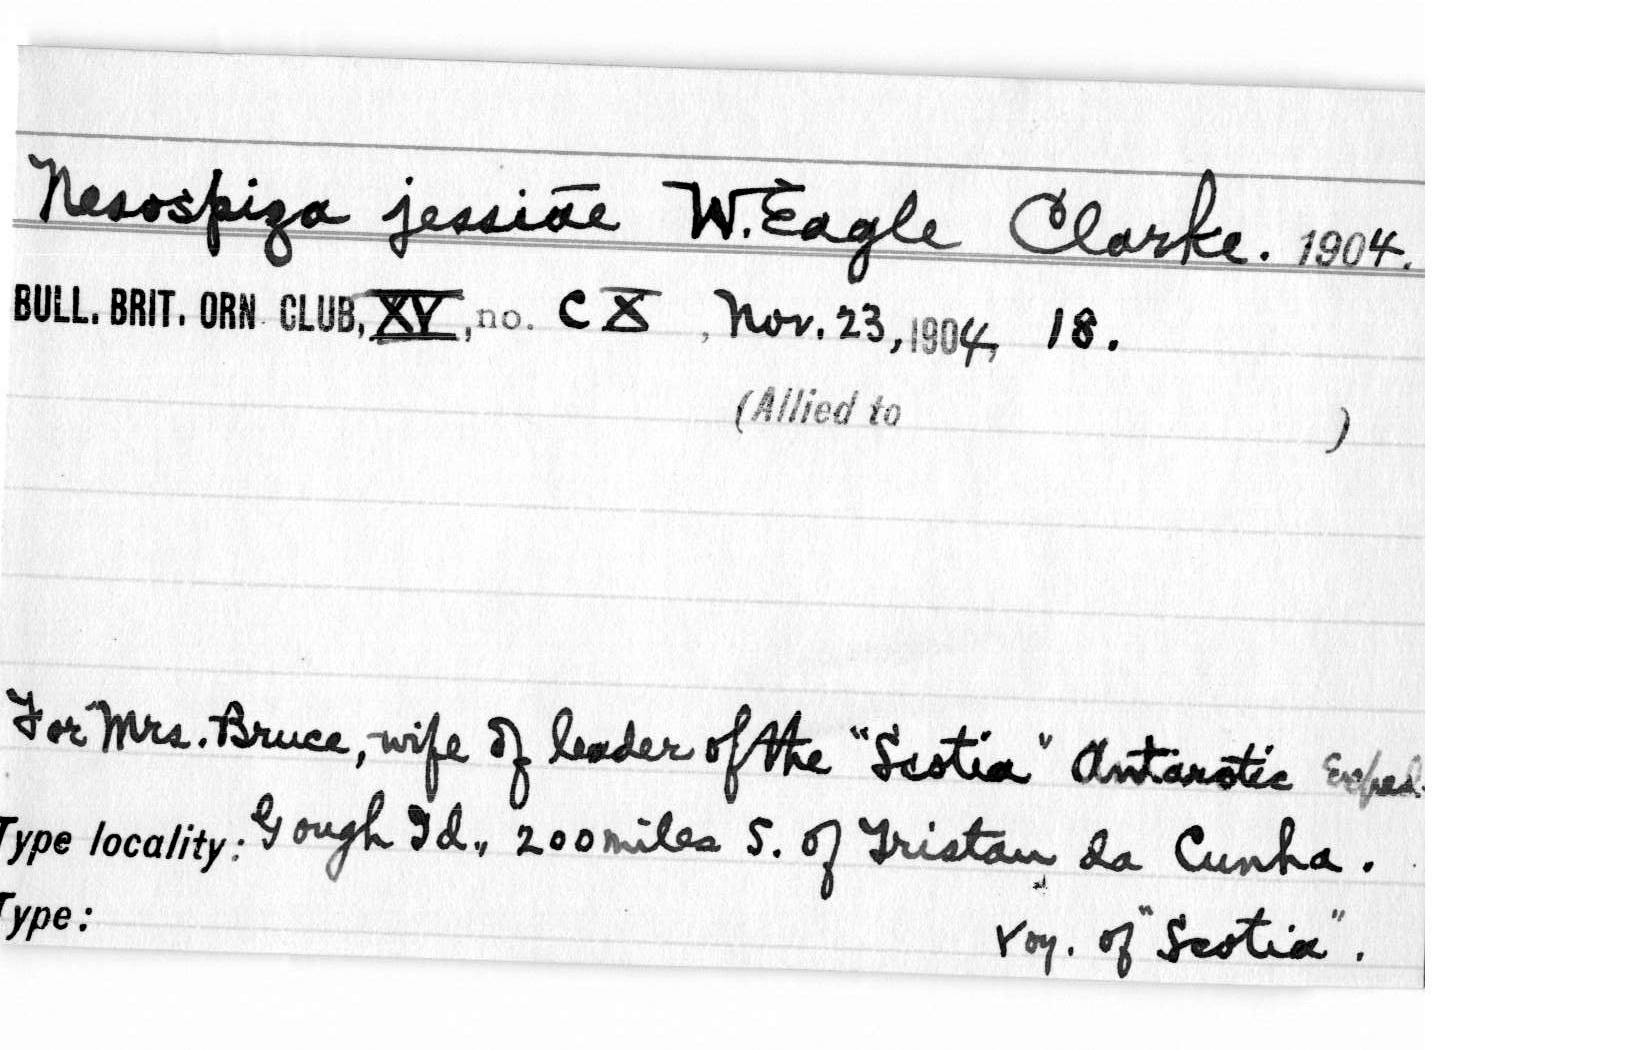 Nesospiza jessiae W. Eagle Clarke. 1904.
BULL. BRIT. ORN. CLUB, XV, no. CX, Nov. 23, 1904, 18.
(Allied to )
For Mrs. Bruce, wife of leader of the "Scotia" Antarctic Exped.
Type locality: Gough Id., 200 miles S. of Tristan da Cunha.
Type: Voy. of "Scotia".